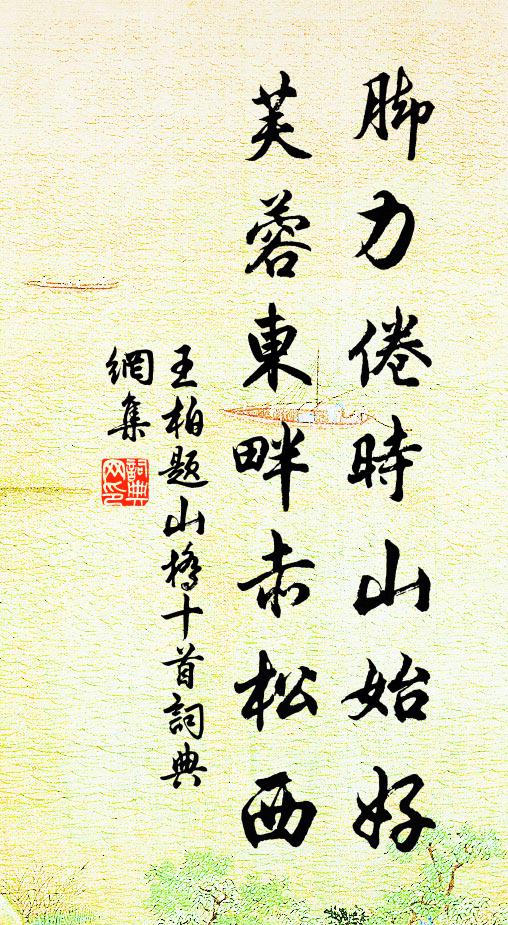 脚力倦時山始好
芙蓉東畔赤松西
王柏题山橋十首詞典
網集
詞典网印